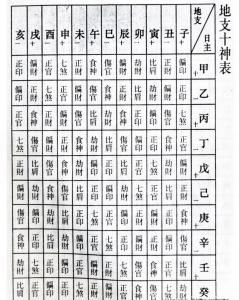 地支十神表
地支 日主 甲 乙 丙 丁 戊 己 庚 辛 壬 癸
子 + 偏印 正印 七煞 正官 偏財 正財 食神 傷官 比肩 劫財
丑 − 正財 偏財 傷官 食神 劫財 比肩 正印 偏印 正官 七煞
寅 + 比肩 劫財 偏印 正印 七煞 正官 偏財 正財 食神 傷官
卯 − 劫財 比肩 正印 偏印 正官 七煞 正財 偏財 傷官 食神
辰 + 偏財 正財 食神 傷官 比肩 劫財 偏印 正印 七煞 正官
巳 − 傷官 食神 劫財 比肩 正印 偏印 正官 七煞 正財 偏財
午 + 食神 傷官 比肩 劫財 偏印 正印 七煞 正官 偏財 正財
未 − 正財 偏財 傷官 食神 劫財 比肩 正印 偏印 正官 七煞
申 + 七煞 正官 偏財 正財 食神 傷官 比肩 劫財 偏印 正印
酉 − 正官 七煞 正財 偏財 傷官 食神 劫財 比肩 正印 偏印
戌 + 偏財 正財 食神 傷官 比肩 劫財 偏印 正印 七煞 正官
亥 − 正印 偏印 正官 七煞 正財 偏財 傷官 食神 劫財 比肩